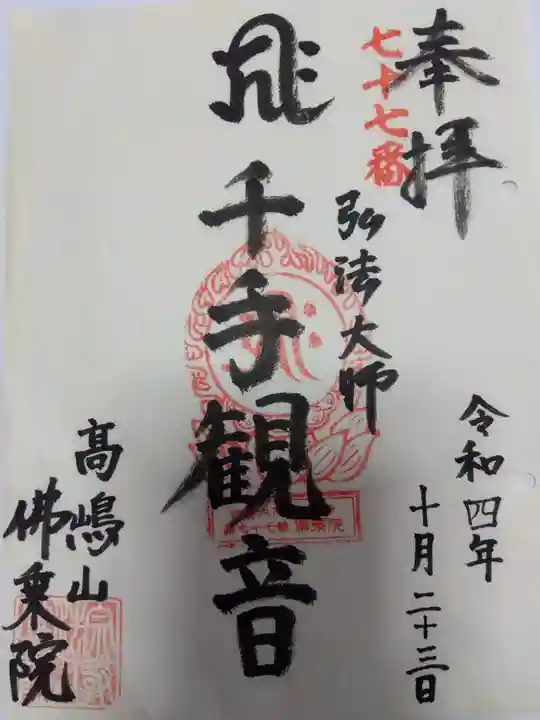 奉拝
七十七番
弘法大師
千手観音
令和四年
十月二十三日
高嶋山
佛乗院